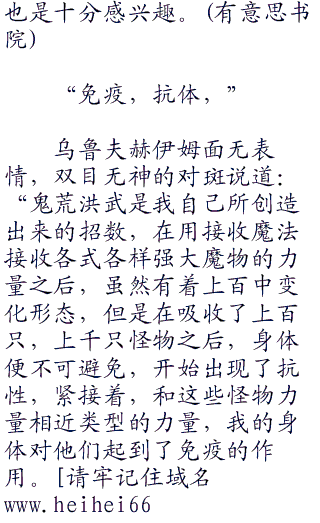 也是十分感兴趣。(有意思书
院)
“免疫，抗体，”
乌鲁夫赫伊姆面无表
情，双目无神的对斑说道：
“鬼荒洪武是我自己所创造
出来的招数，在用接收魔法
接收各式各样强大魔物的力
量之后，虽然有着上百中变
化形态，但是在吸收了上百
只，上千只怪物之后，身体
便不可避免，开始出现了抗
性，紧接着，和这些怪物力
量相近类型的力量，我的身
体对他们起到了免疫的作
用。[请牢记住域名
www.heihei66